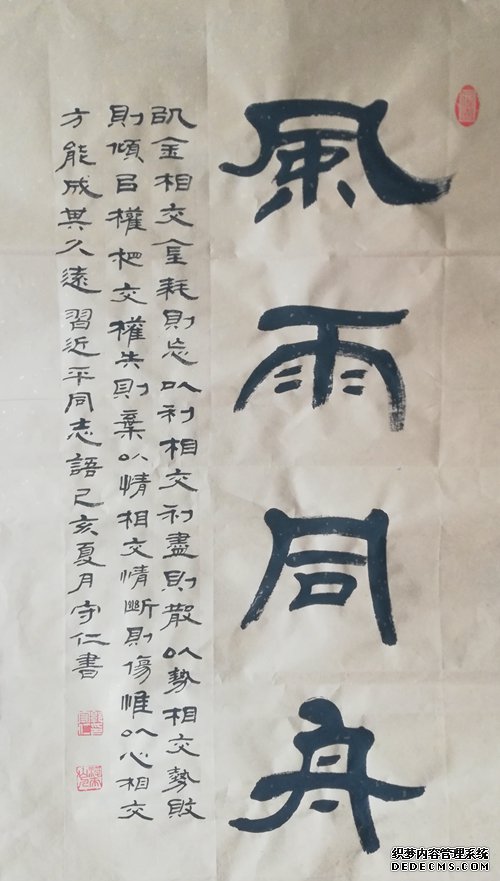 風雨同舟
以金相交金耗則忘以利相交利盡則散以勢相交勢敗
則傾㠯權相交權失則棄以情相交情斷則傷惟以心相交
方能成其久遠習近平同志語己亥夏月守仁書
织梦内容管理系统
DEDECMS.COM